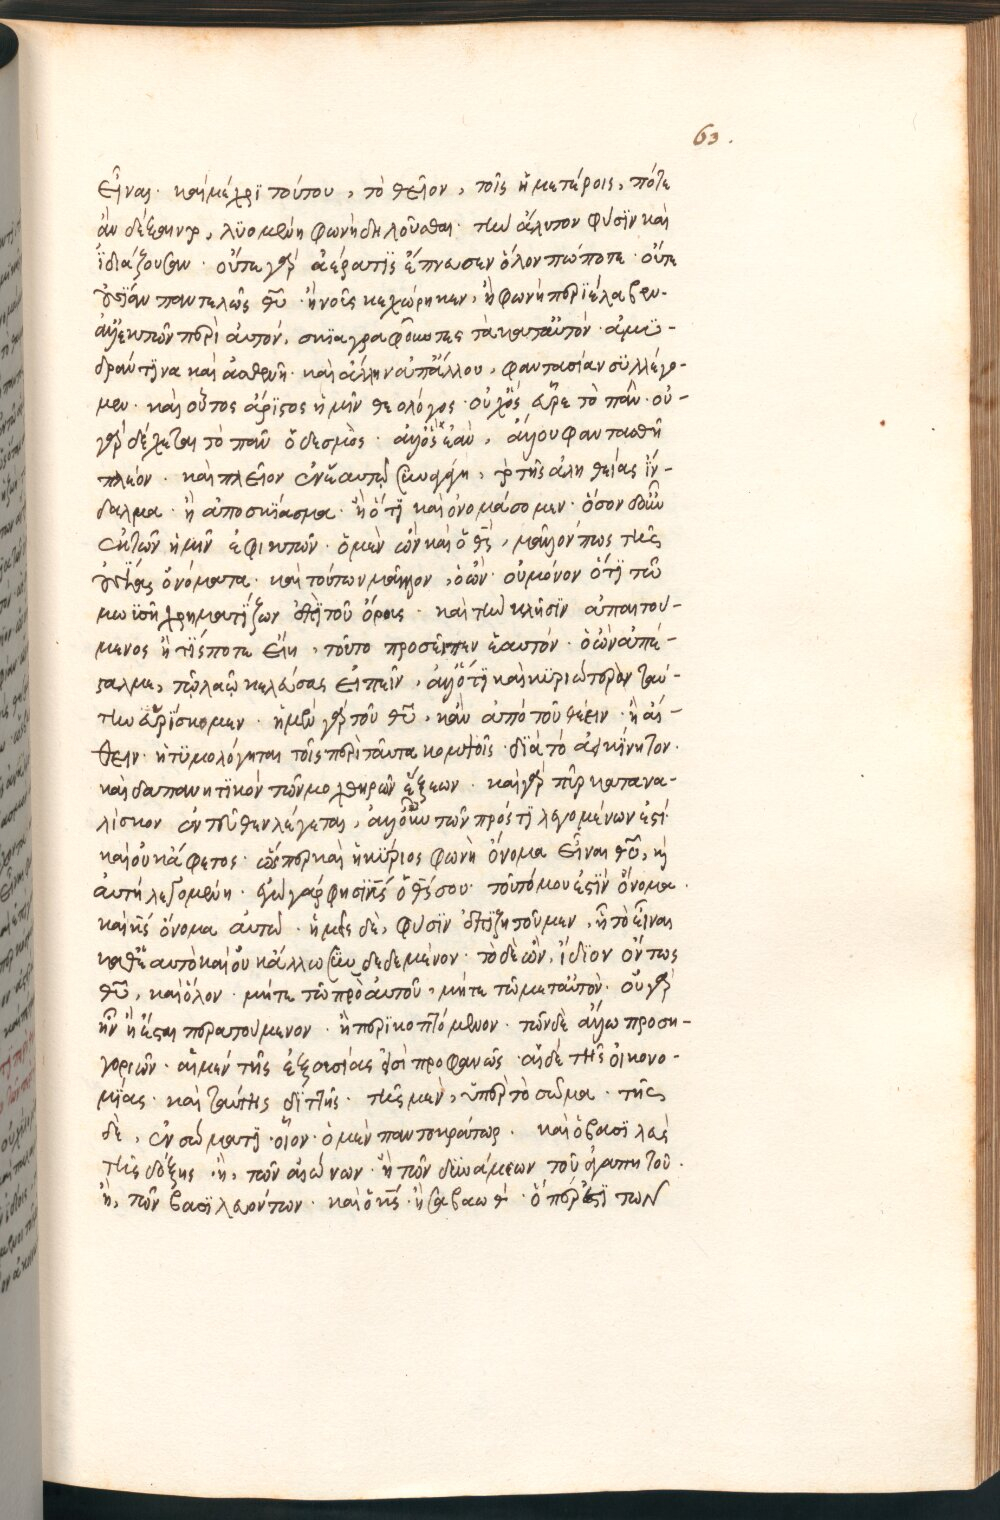 63.
εἶναι· καὶ μέχρι τούτου, τὸ θεῖον, τοῖς ἡμετέροις, πότε
ἂν δέξαιντο, λυομένη φωνὴ δηλοῦσθαι· τὴν ἄλυτον φύσιν καὶ
ἰδιάζουσαν· οὔτε γὰρ ἀέρα τίς ἔπνευσεν ὅλον πώποτε· οὔτε
οὐσίαν παντελῶς θῦ· ἢ νοῦς κεχώρηκεν, ἢ φωνὴ περιέλαβεν·
ἀλλ' ἐκ τῶν περὶ αὐτόν, σκιαγραφοῦντες τὰ κατ' αὐτόν· ἀμυ-
δράν τινα καὶ ἀσθενῆ· καὶ ἄλλην ἀπ' ἄλλου, φαντασίαν συλλέγο-
μεν· καὶ οὗτος ἄριστος ἡμῖν θεολόγος· οὐχ ὃς εὗρε τὸ πᾶν· οὐ-
γὰρ δέχεται τὸ πᾶν ὁ δεσμὸς· ἀλλ' ὃς ἐὰν, ἄλλου φαντασθῆ
πλέον· καὶ πλεῖον ἐν ἑαυτῷ συναγάγη, τὸ τῆς ἀληθείας ἴν-
δαλμα· ἢ ἀποσκίασμα· ἢ ὅ τι καὶ ὀνομάσομεν· ὅσον δ' οὖν
ἐκ τῶν ἡμῖν ἐφικτῶν· ὁ μὲν ὢν καὶ ὁ θς, μᾶλλόν πως τῆς
οὐσίας ὀνόματα· καὶ τούτων μᾶλλον, ὁ ὢν· οὐ μόνον ὅτι τῷ
μωϋσῆ χρηματίζων ἐπὶ τοῦ ὄρους· καὶ τὴν κλῆσιν ἀπαιτού-
μενος ἥ τίς ποτε εἴη, τοῦτο προσεῖπεν ἑαυτόν· ὁ ὢν ἀπέ-
σταλκέ με, τῷ λαῷ κελεύσας εἰπεῖν, ἀλλ' ὅτι καὶ κυριώτερον ταύ-
την εὑρίσκομεν· ἡ μὲν γὰρ τοῦ θῦ, κἂν ἀπὸ τοῦ θέειν· ἢ αἴ-
θειν· ἠτυμολόγηται τοῖς περὶ ταῦτα κομψοῖς· διὰ τὸ ἀεικίνητον·
καὶ δαπανητικὸν τῶν μοχθηρῶν ἕξεων· καὶ γὰρ πῦρ καταναλί-
λίσκον ἐντεῦθεν λέγεται, ἀλλ' οὖν τῶν πρός τι λεγομένων ἐστί
καὶ οὐκ ἄφετος· ὥσπερ καὶ ἡ κύριος φωνὴ ὄνομα εἶναι θῦ, καὶ
αὐτὴ λεγομένη· ἐγὼ γάρ φησι κς ὁ θς σου· τοῦτό μου ἐστὶν ὄνομα·
καὶ κς ὄνομα αὐτῷ· ἡμεῖς δὲ, φύσιν ἐπιζητοῦμεν, ᾗ τὸ εἶναι
καθ' ἑαυτὸ καὶ οὐκ ἄλλω συνδεδεμένον· τὸ δὲ ὢν, ἴδιον ὄντως
θῦ, καὶ ὅλον· μήτε τῷ πρὸ αὐτοῦ, μήτε τῷ μετ' αὐτὸν· οὐ γὰρ
ἦν ἢ ἔσται περατούμενον· ἢ περικοπτόμενον· τῶν δὲ ἄλλων προση-
γοριῶν· αἱ μέν τῆς ἐξουσίας εἰσὶ προφανῶς· αἱ δὲ τῆς οἰκονο-
μίας· καὶ ταύτης διττῆς· τῆς μὲν, ὑπὲρ τὸ σῶμα· τῆς
δὲ, ἐν σώματι· οἷον· ὁ μὲν παντοκράτωρ· καὶ ὁ βασιλεὺς
τῆς δόξης· ἢ, τῶν αἰώνων· ἢ τῶν δυνάμεων τοῦ ἀγαπητοῦ·
ἢ, τῶν βασιλευόντων· καὶ ὁ κς· ἢ σαβαώθ· ὅπερ ἐστὶ τῶν